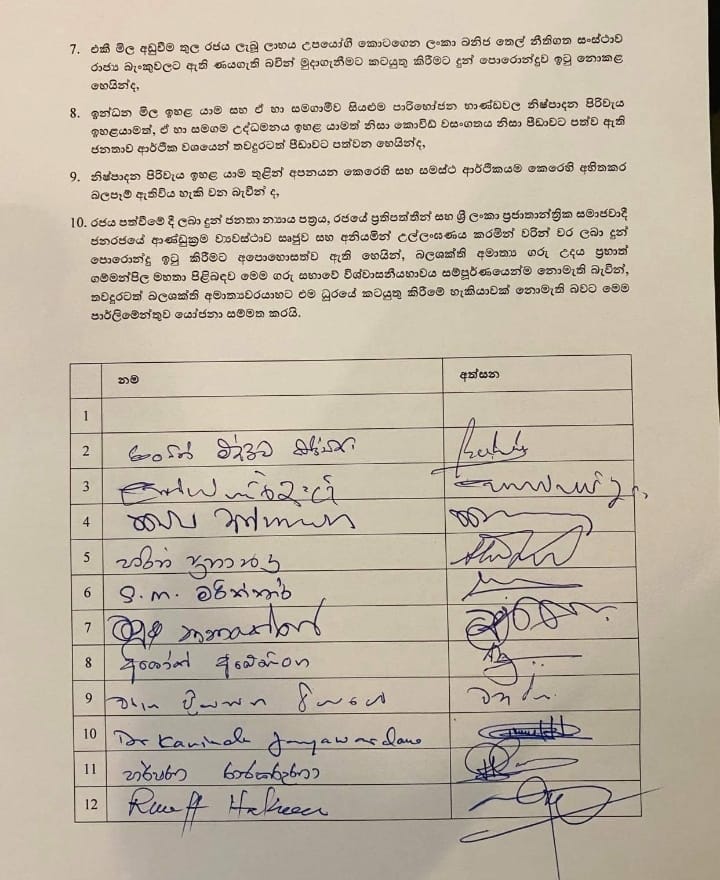 7. එකී මිල අඩුවීම තුල රජය ලැබූ ලාභය උපයෝගී කොටගෙන ලංකා ඛනිජ තෙල් නීතිගත සංස්ථාව
රාජ්‍ය බැංකුවලට ඇති ණයගැති බවින් මුදාගැනීමට කටයුතු කිරීමට දුන් පොරොන්දුව ඉටු නොකළ
හෙයින්ද,
8. ඉන්ධන මිල ඉහළ යාම සහ ඒ හා සමගාමීව සියළුම පාරිභෝජන භාණ්ඩවල නිෂ්පාදන පිරිවැය
ඉහළයාමත්, ඒ හා සමගම උද්ධමනය ඉහළ යාමත් නිසා කොවිඩ් වසංගතය නිසා පීඩාවට පත්ව ඇති
ජනතාව ආර්ථික වශයෙන් තවදුරටත් පීඩාවට පත්වන හෙයින්ද,
9. නිෂ්පාදන පිරිවැය ඉහළ යාම තුළින් අපනයන කෙරෙහි සහ සමස්ථ ආර්ථිකයම කෙරෙහි අහිතකර
බලපෑම් ඇතිවිය හැකි වන බැවින් ද,
10. රජය පත්වීමේ දී ලබා දුන් ජනතා න්‍යාය පත්‍රය, රජයේ ප්‍රතිපත්තීන් සහ ශ්‍රී ලංකා ප්‍රජාතාන්ත්‍රික සමාජවාදී
ජනරජයේ ආණ්ඩුක්‍රම ව්‍යවස්ථාව ඍජුව සහ අනියමින් උල්ලංඝණය කරමින් වරින් වර ලබා දුන්
පොරොන්දු ඉටු කිරීමට අපොහොසත්ව ඇති හෙයින්, බලශක්ති අමාත්‍ය ගරු උදය ප්‍රභාත්
ගම්මන්පිල මහතා පිළිබඳව මෙම ගරු සභාවේ විශ්වාසනීයභාවය සම්පූර්ණයෙන්ම නොමැති බැවින්,
තවදුරටත් බලශක්ති අමාත්‍යවරයාහට එම ධූරයේ කටයුතු කිරීමේ හැකියාවක් නොමැති බවට මෙම
පාර්ලිමේන්තුව යෝජනා සම්මත කරයි.
නම අත්සන
1
2
3
4
5 හාරින් ප්‍රනාන්දු
6 S.M. මරික්කාර්
7
8 අශෝක් අබේසිංහ
9
10 Dr Kavinda Jayawardane
11
12 Rauff Hakeem